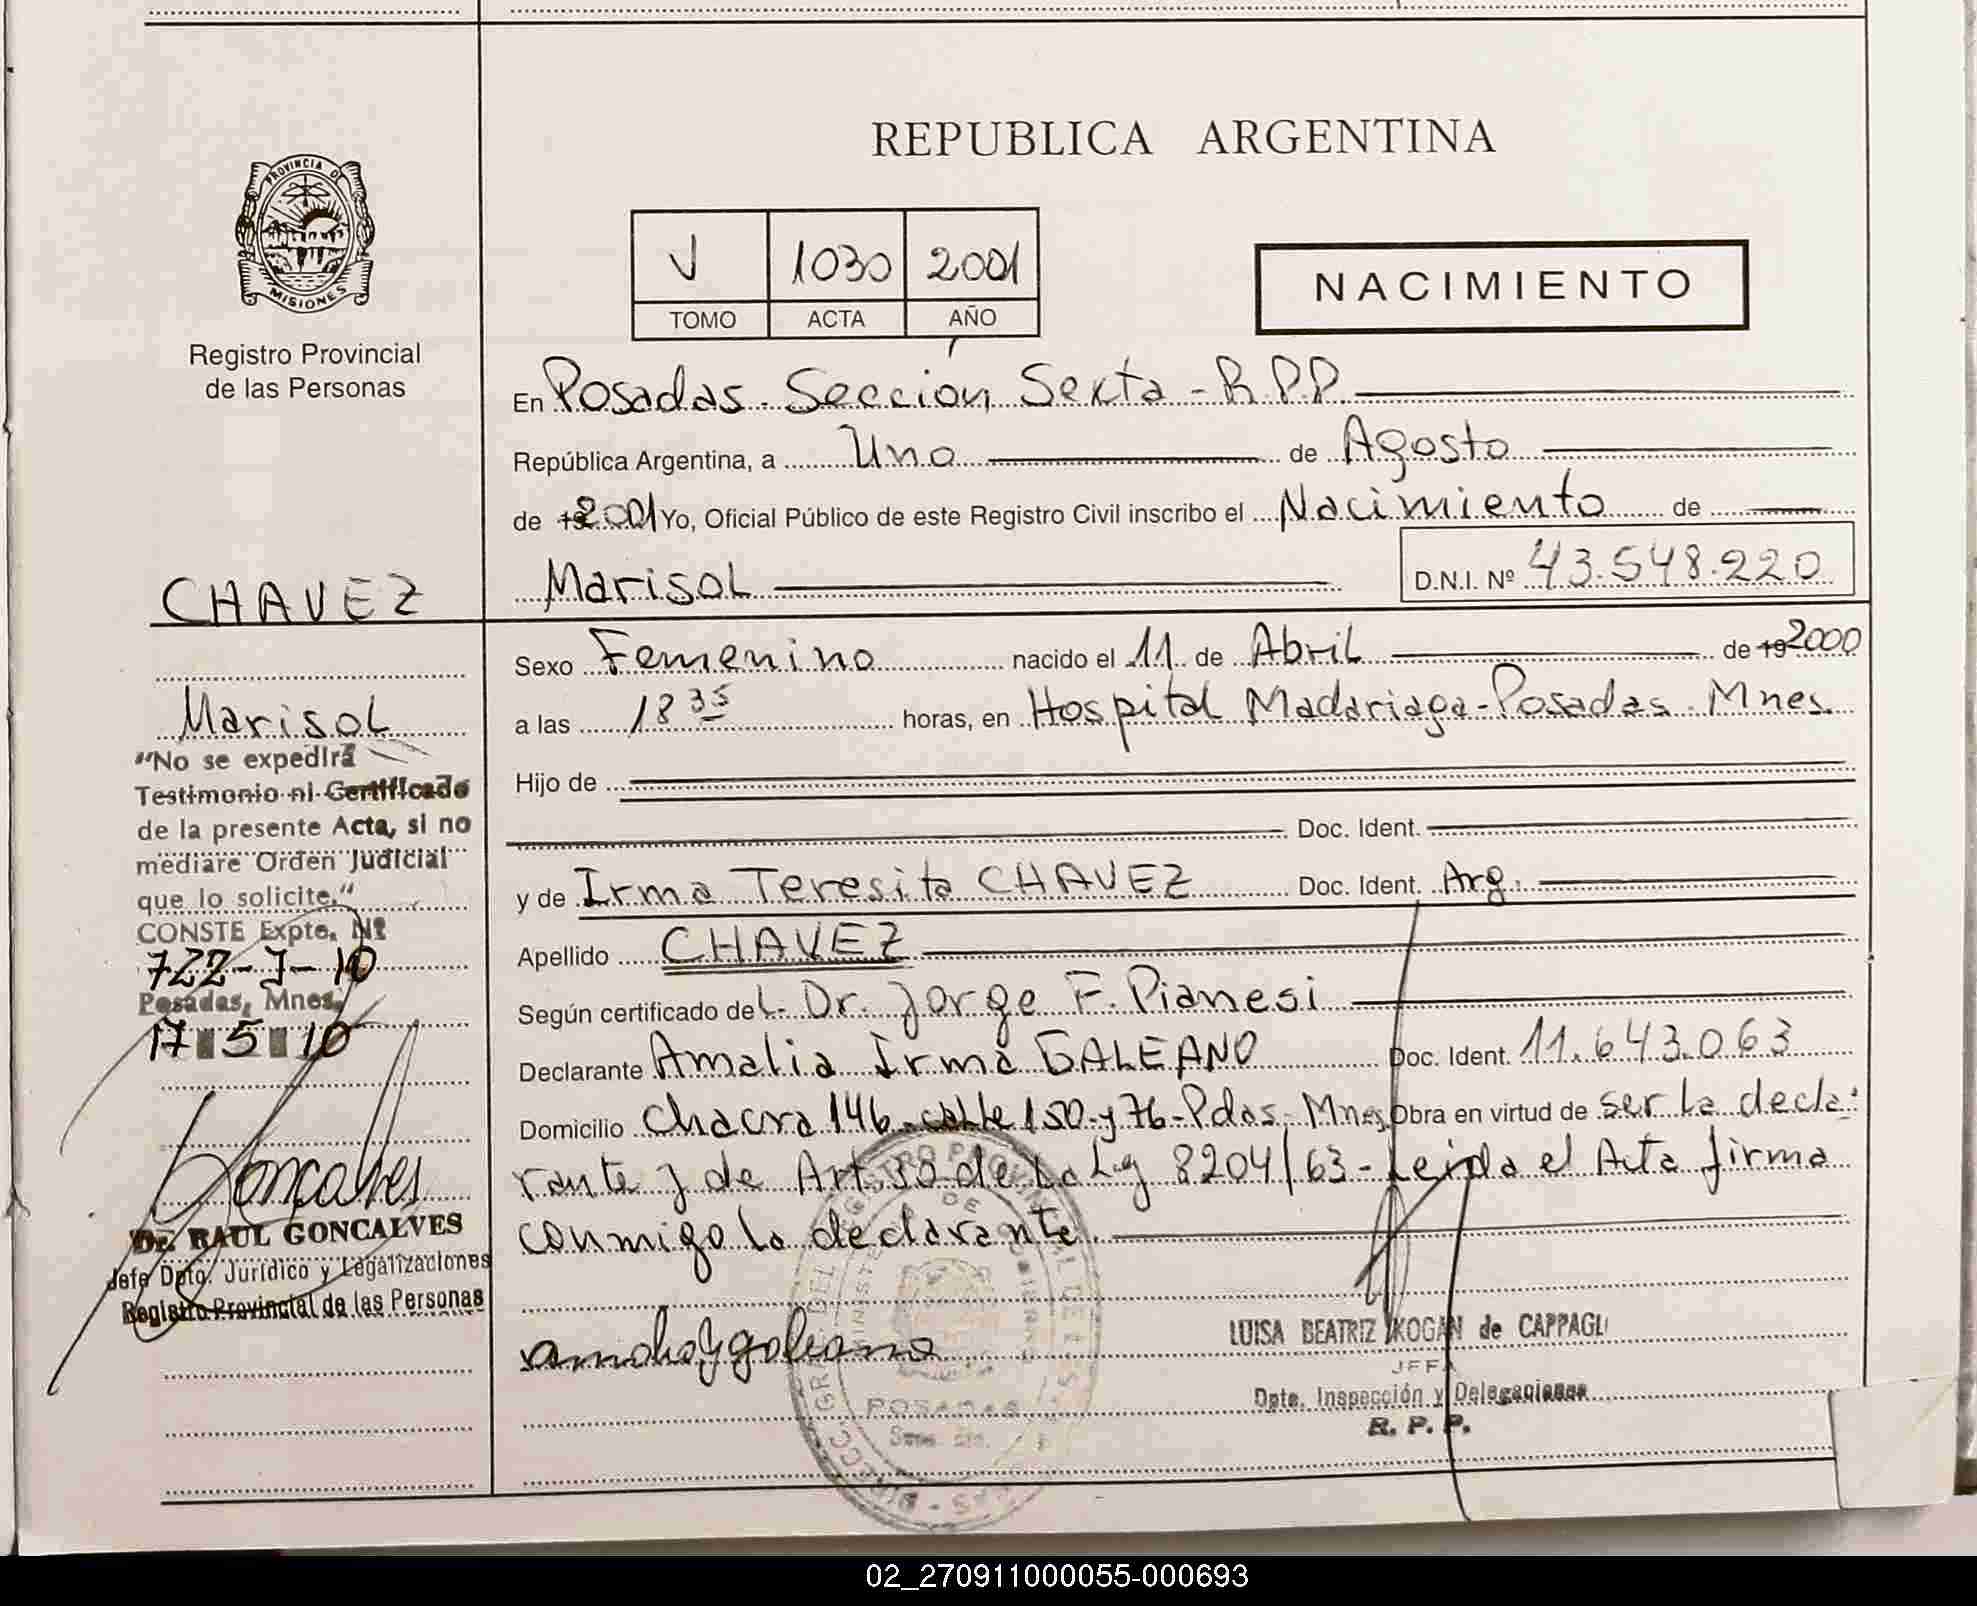 REPUBLICA ARGENTINA
PROVINCIA DE
MISIONES
Registro Provincial
de las Personas
V 1030 2001
TOMO ACTA AÑO
NACIMIENTO
En Posadas - Sección Sexta - R.P.P.
República Argentina, a Uno de Agosto
de 19 2001 Yo, Oficial Público de este Registro Civil inscribo el Nacimiento de
Marisol D.N.I. Nº 43.548.220
CHAVEZ
Marisol
"No se expedirá
Testimonio ni Certificado
de la presente Acta, si no
mediare Orden Judicial
que lo solicite."
CONSTE Expte. Nº
722-J-10
Posadas, Mnes.
17 5 10
Goncalves
Dr. RAUL GONCALVES
Jefe Dpto. Jurídico y Legalizaciones
Registro Provincial de las Personas
Sexo Femenino nacido el 11 de Abril de 19 2000
a las 18 35 horas, en Hospital Madariaga - Posadas - Mnes.
Hijo de
Doc. Ident.
y de Irma Teresita CHAVEZ Doc. Ident. Arg.
Apellido CHAVEZ
Según certificado del Dr. Jorge F. Pianesi
Declarante Amalia Irma GALEANO Doc. Ident. 11.643.063
Domicilio Chacra 146 - calle 150 y 76 - Pdas - Mnes Obra en virtud de ser la decla-
rante y de Art. 30 de la Ley 8204/63 - Leida el Acta firma
conmigo la declarante.
LUISA BEATRIZ KOGAN de CAPPAGLI
JEFA
Dpto. Inspección y Delegaciones
R. P. P.
POSADAS
02_270911000055-000693